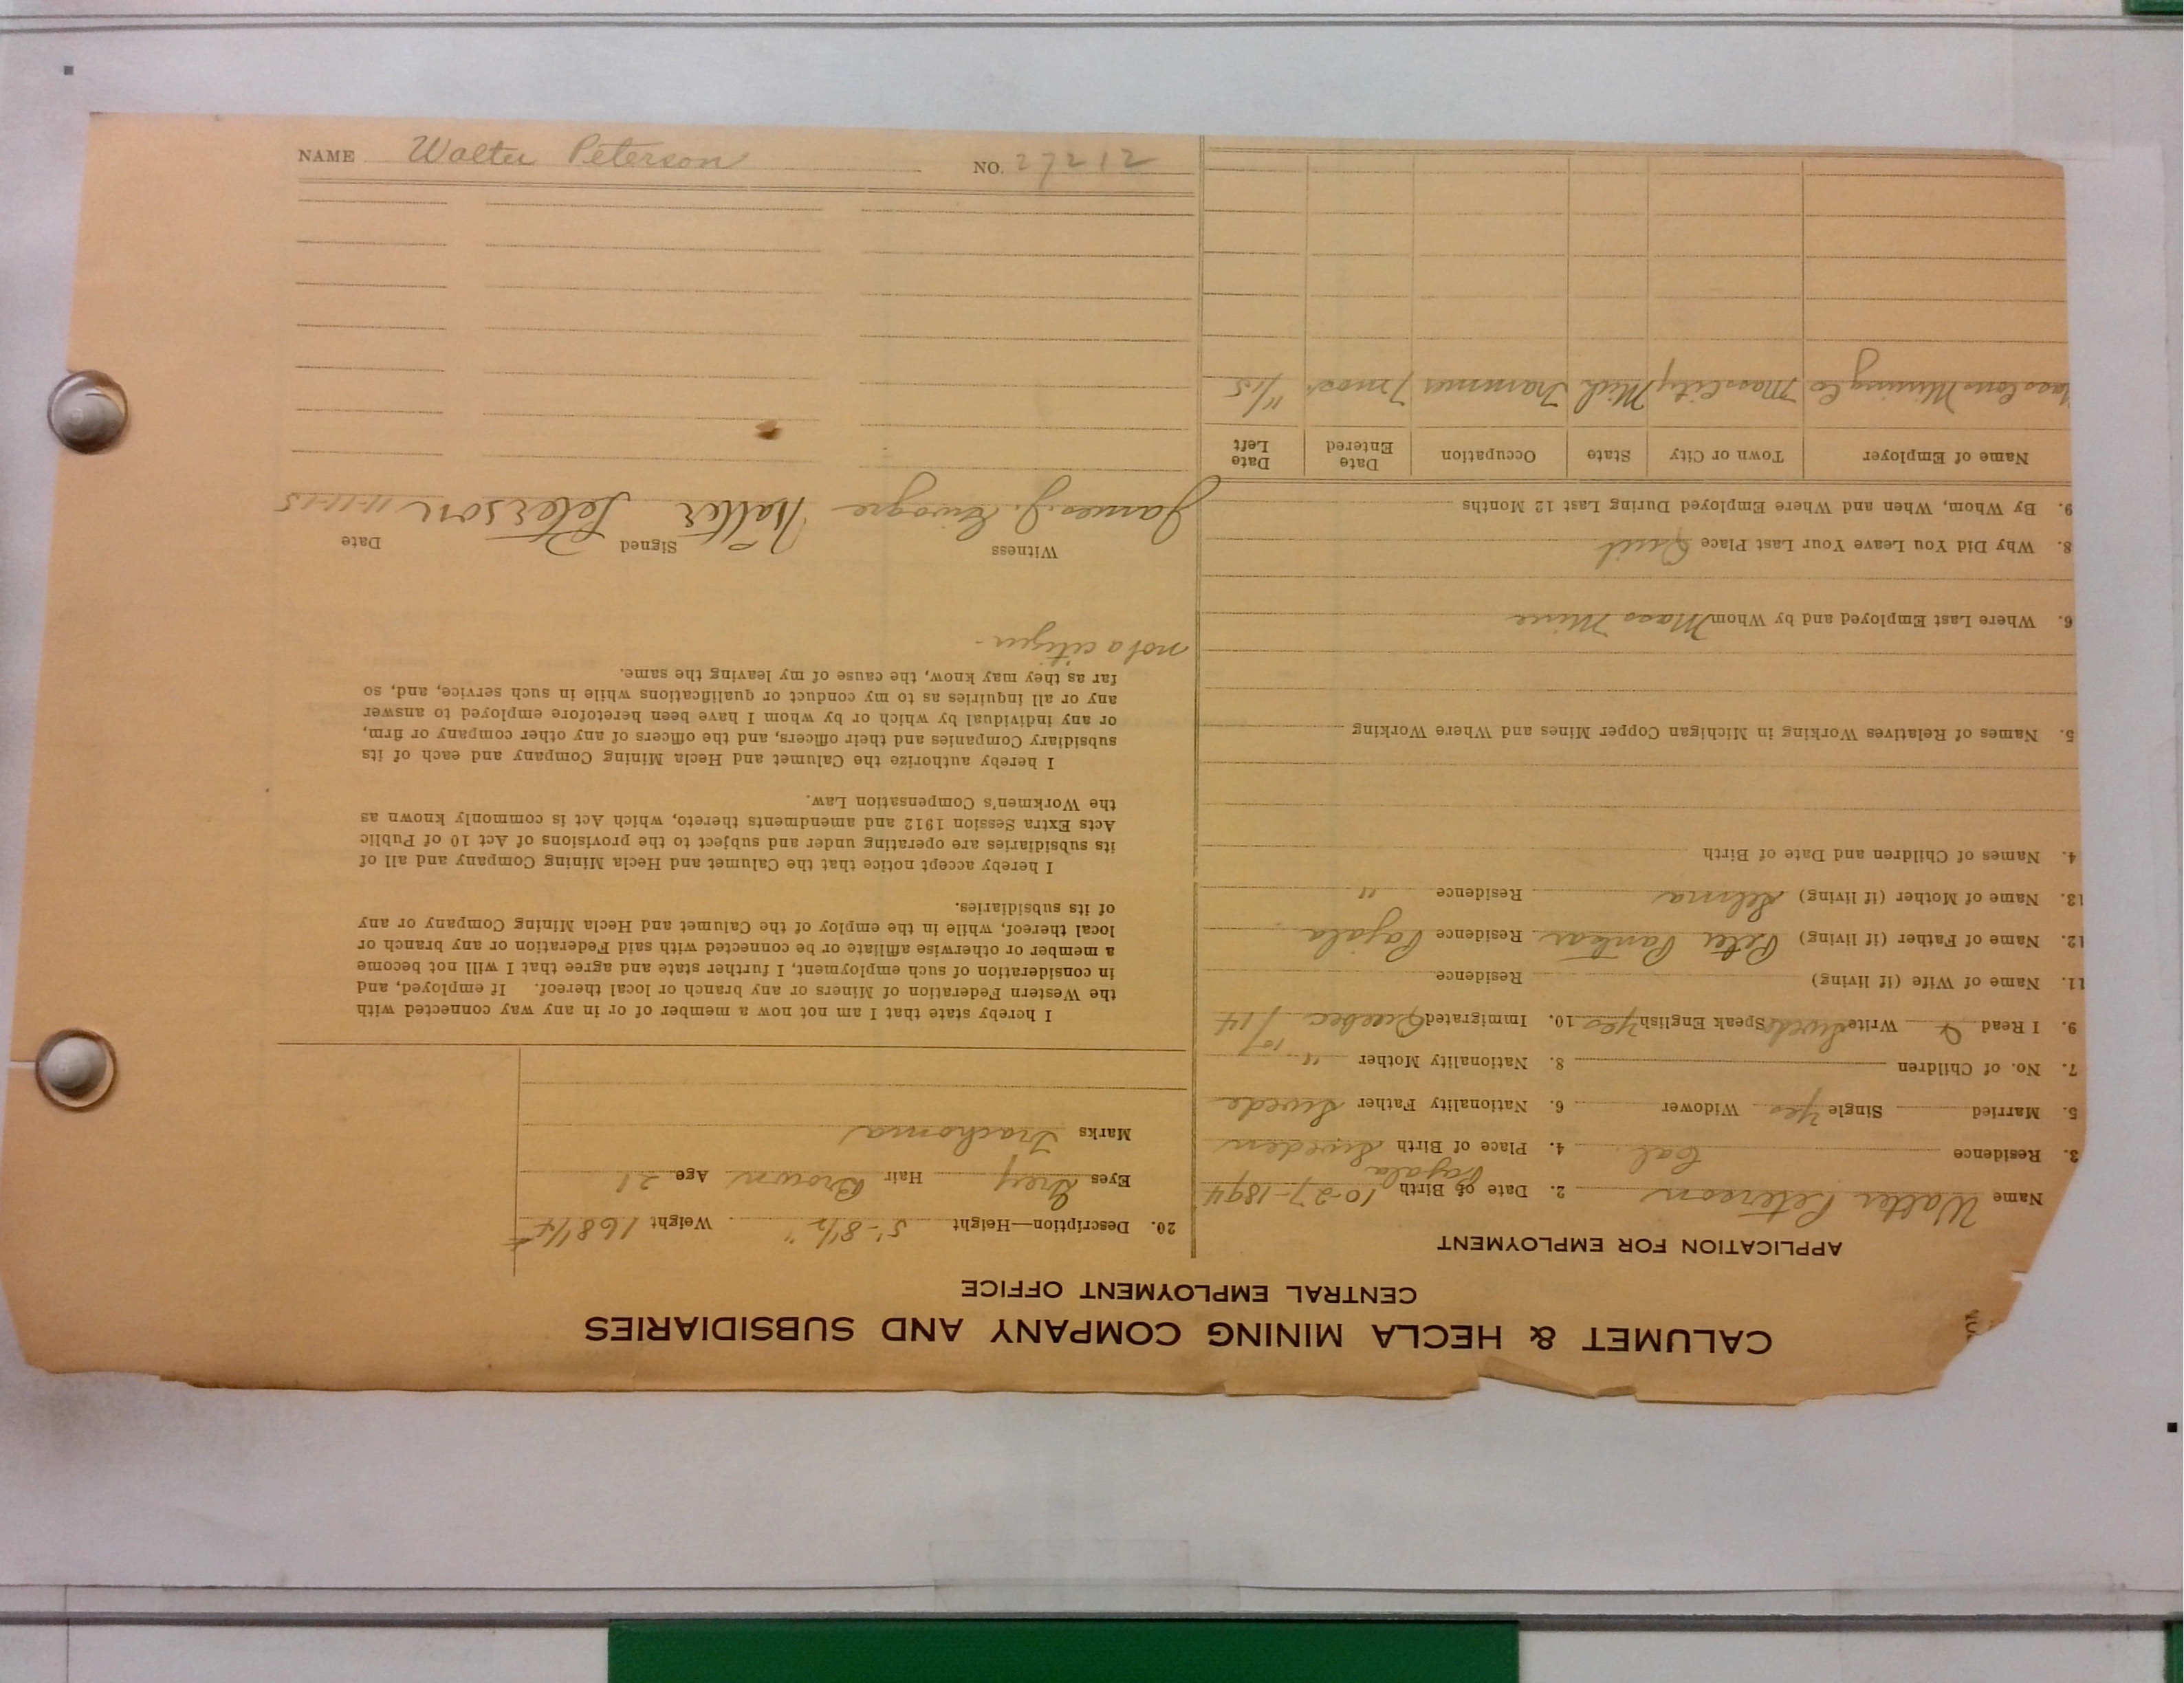 CALUMET & HECLA MINING COMPANY AND SUBSIDIARIES
CENTRAL EMPLOYMENT OFFICE
APPLICATION FOR EMPLOYMENT
Name Walter Peterson 2. Date of Birth 10-27-1894
Pajala
3. Residence Cal 4. Place of Birth Sweden
5. Married Single Yes Widower 6. Nationality Father Swede
7. No. of Children 8. Nationality Mother "
9. I Read & Write Swede Speak English Yes 10. Immigrated Quebec 10/14
11. Name of Wife (if living) Residence
12. Name of Father (if living) Peter Residence Pajala
13. Name of Mother (if living) Selma Residence "
4. Names of Children and Date of Birth
5. Names of Relatives Working in Michigan Copper Mines and Where Working
6. Where Last Employed and by Whom Mass Mine
8. Why Did You Leave Your Last Place Quit
9. By Whom, When and Where Employed During Last 12 Months
Name of Employer Town or City State Occupation Date Entered Date Left
Mass Cons Mining Co Mass City Mich Trammer 7 mos 11/15
20. Description—Height 5'-8 1/2" Weight 168 1/4
Eyes Grey Hair Brown Age 21
Marks Trachoma
I hereby state that I am not now a member of or in any way connected with
the Western Federation of Miners or any branch or local thereof. If employed, and
in consideration of such employment, I further state and agree that I will not become
a member or otherwise affiliate or be connected with said Federation or any branch or
local thereof, while in the employ of the Calumet and Hecla Mining Company or any
of its subsidiaries.
I hereby accept notice that the Calumet and Hecla Mining Company and all of
its subsidiaries are operating under and subject to the provisions of Act 10 of Public
Acts Extra Session 1912 and amendments thereto, which Act is commonly known as
the Workmen's Compensation Law.
I hereby authorize the Calumet and Hecla Mining Company and each of its
subsidiary Companies and their officers, and the officers of any other company or firm,
or any individual by which or by whom I have been heretofore employed to answer
any or all inquiries as to my conduct or qualifications while in such service, and, so
far as they may know, the cause of my leaving the same.
not a citizen -
Witness Signed Date
James J. Walter Peterson 11-11-15
NAME Walter Peterson NO. 27212